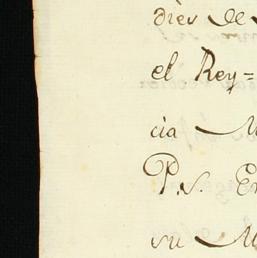 dies de
el Rey=
cia
P.s. En
su